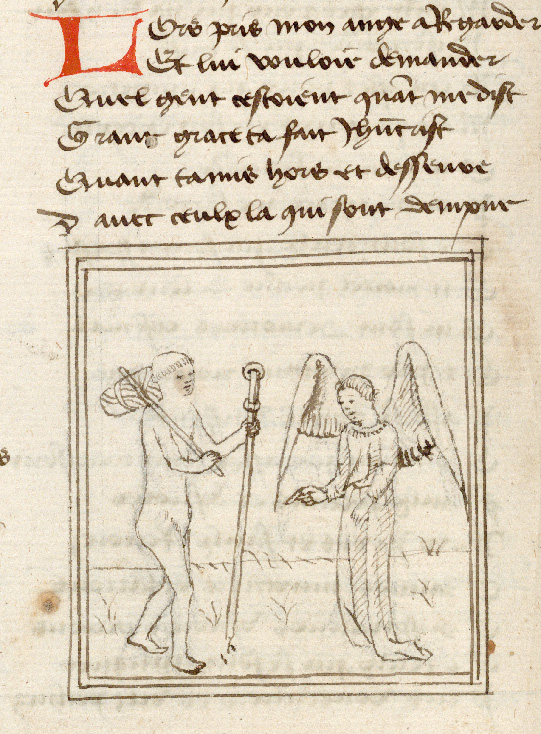 Lors pris mon ange a Regarder
Et lui vouloie demander
Quel gent cestoient quāt me dist
Grant grace ta fait Jhūcrist
Quant ta mis hors et desseure
D auec ceulx la qui sont